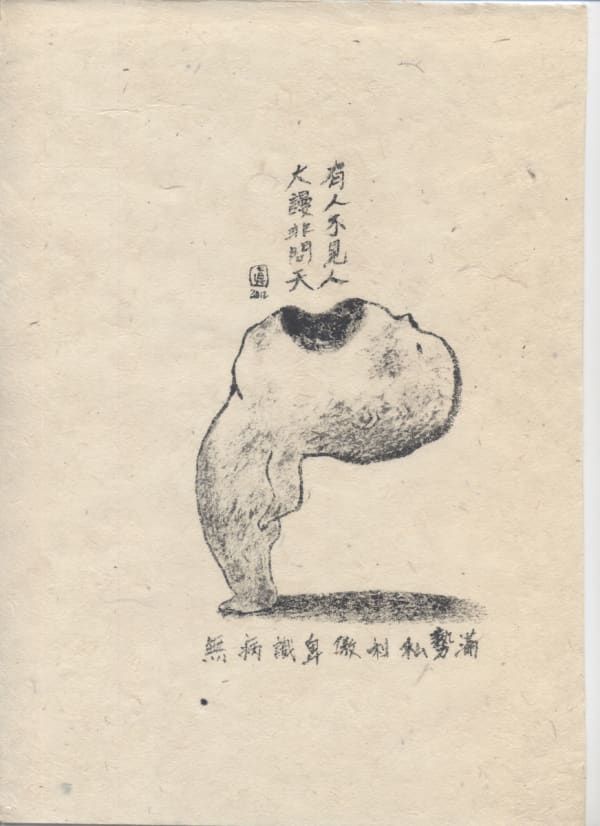 有人不見人
大謾非問天
2012
滿勢私利傲卑識病無